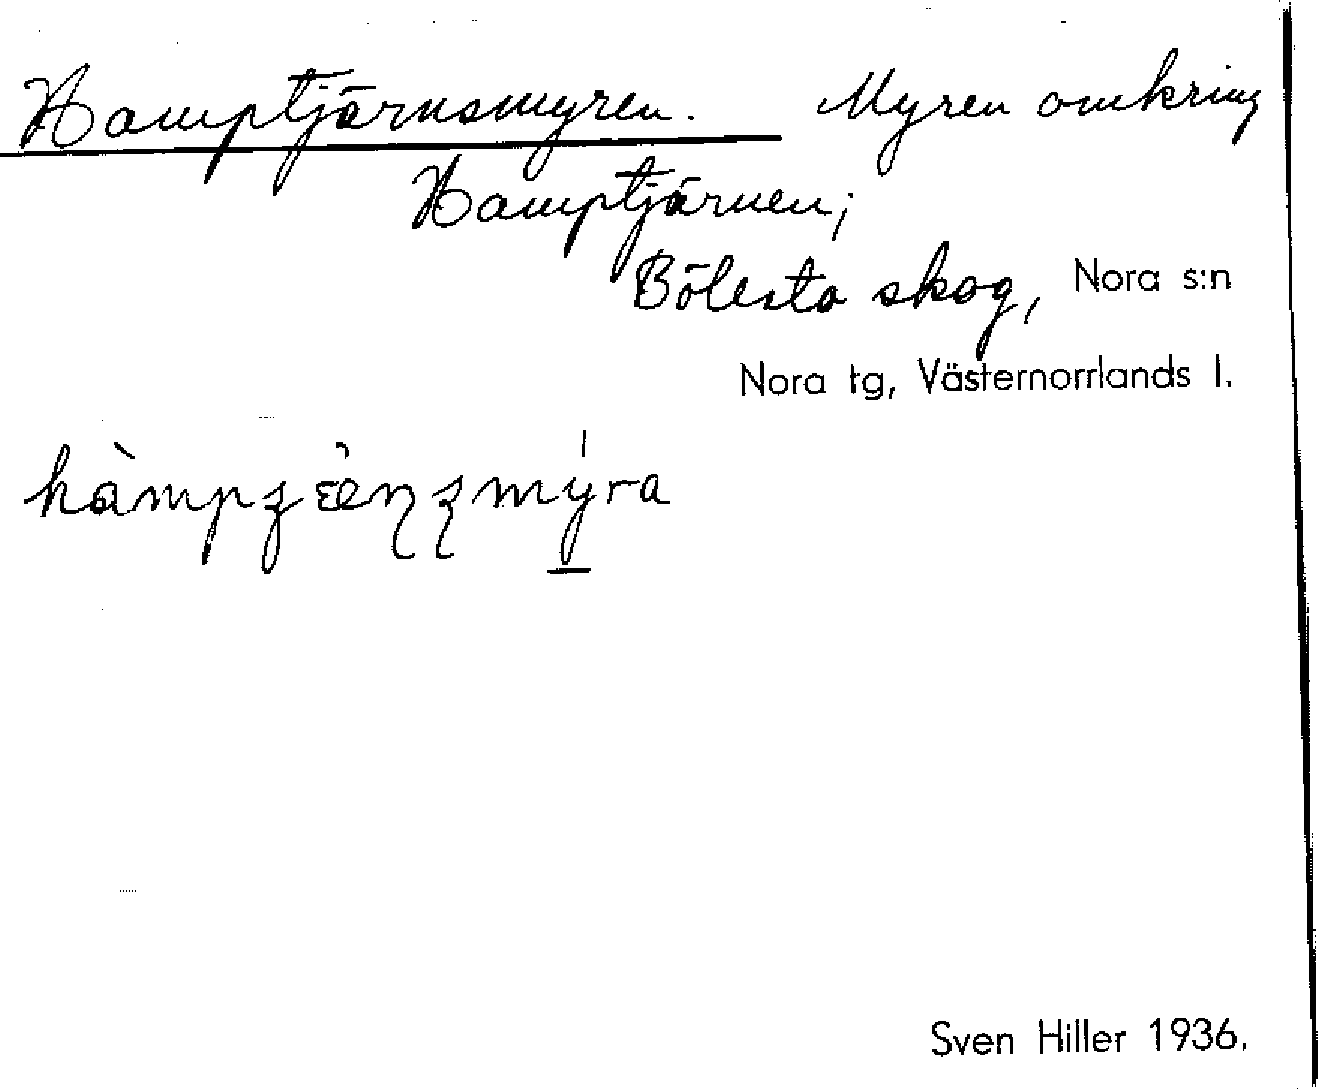 Hamptjärnsmyren. Myren omkring
Hamptjärnen;
Bölesta skog, Nora s:n
Nora tg, Västernorrlands l.
Sven Hiller 1936.